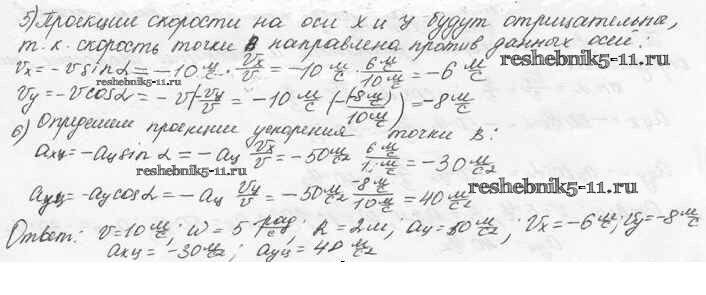 5) Проекции скорости на оси x и y будут отрицательна,
т.к. скорость точки B направлена против данных осей:
reshebnik5-11.ru
Vx = -v sin α = -10 м/с · Vx/v = -10 м/с · 6 м/с / 10 м/с = -6 м/с
Vy = -v cos α = -v (-Vy/v) = -10 м/с (-(-8 м/с) / 10 м/с) = -8 м/с
6) Определим проекции ускорения точки B:
reshebnik5-11.ru
aхц = -aц sin α = -aц Vx/v = -50 м/с² 6 м/с / 1 м/с = -30 м/с²
reshebnik5-11.ru
aуц = -aц cos α = -aц Vy/v = -50 м/с² -8 м/с / 10 м/с = 40 м/с²
reshebnik5-11.ru
Ответ: v = 10 м/с; w = 5 рад/с; R = 2 м; aц = 50 м/с²; Vx = -6 м/с; Vy = -8 м/с
aхц = -30 м/с²; aуц = 40 м/с²